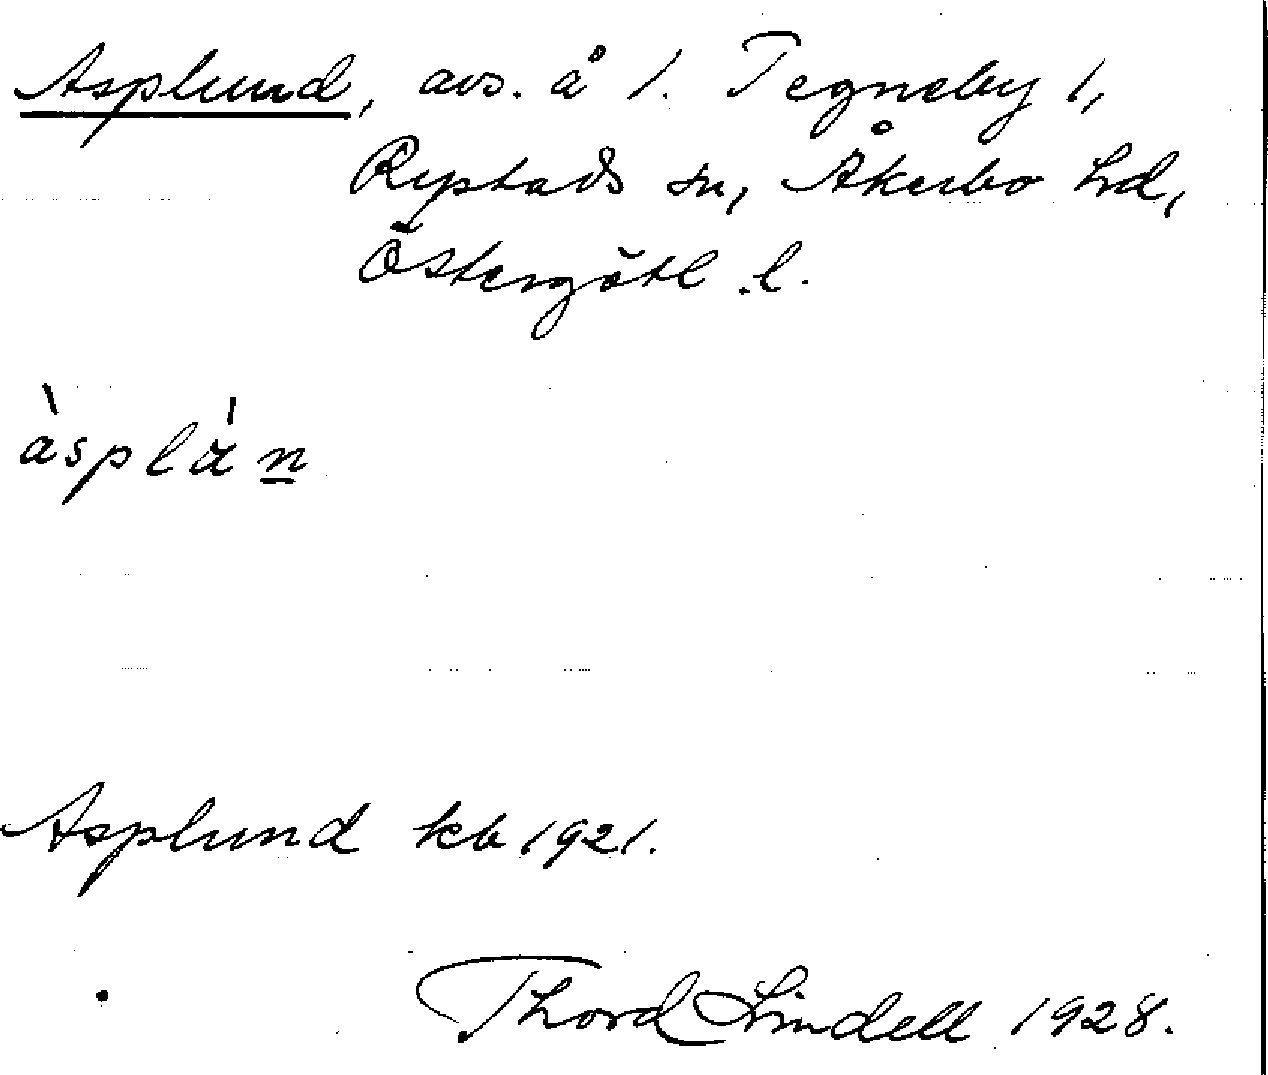 Asplund, avs. å 1. Tegneby 1,
Rystads sn, Åkerbo hd,
Östergötl. l.
àsplán
Asplund kb 1921.
Thord Lindell 1928.